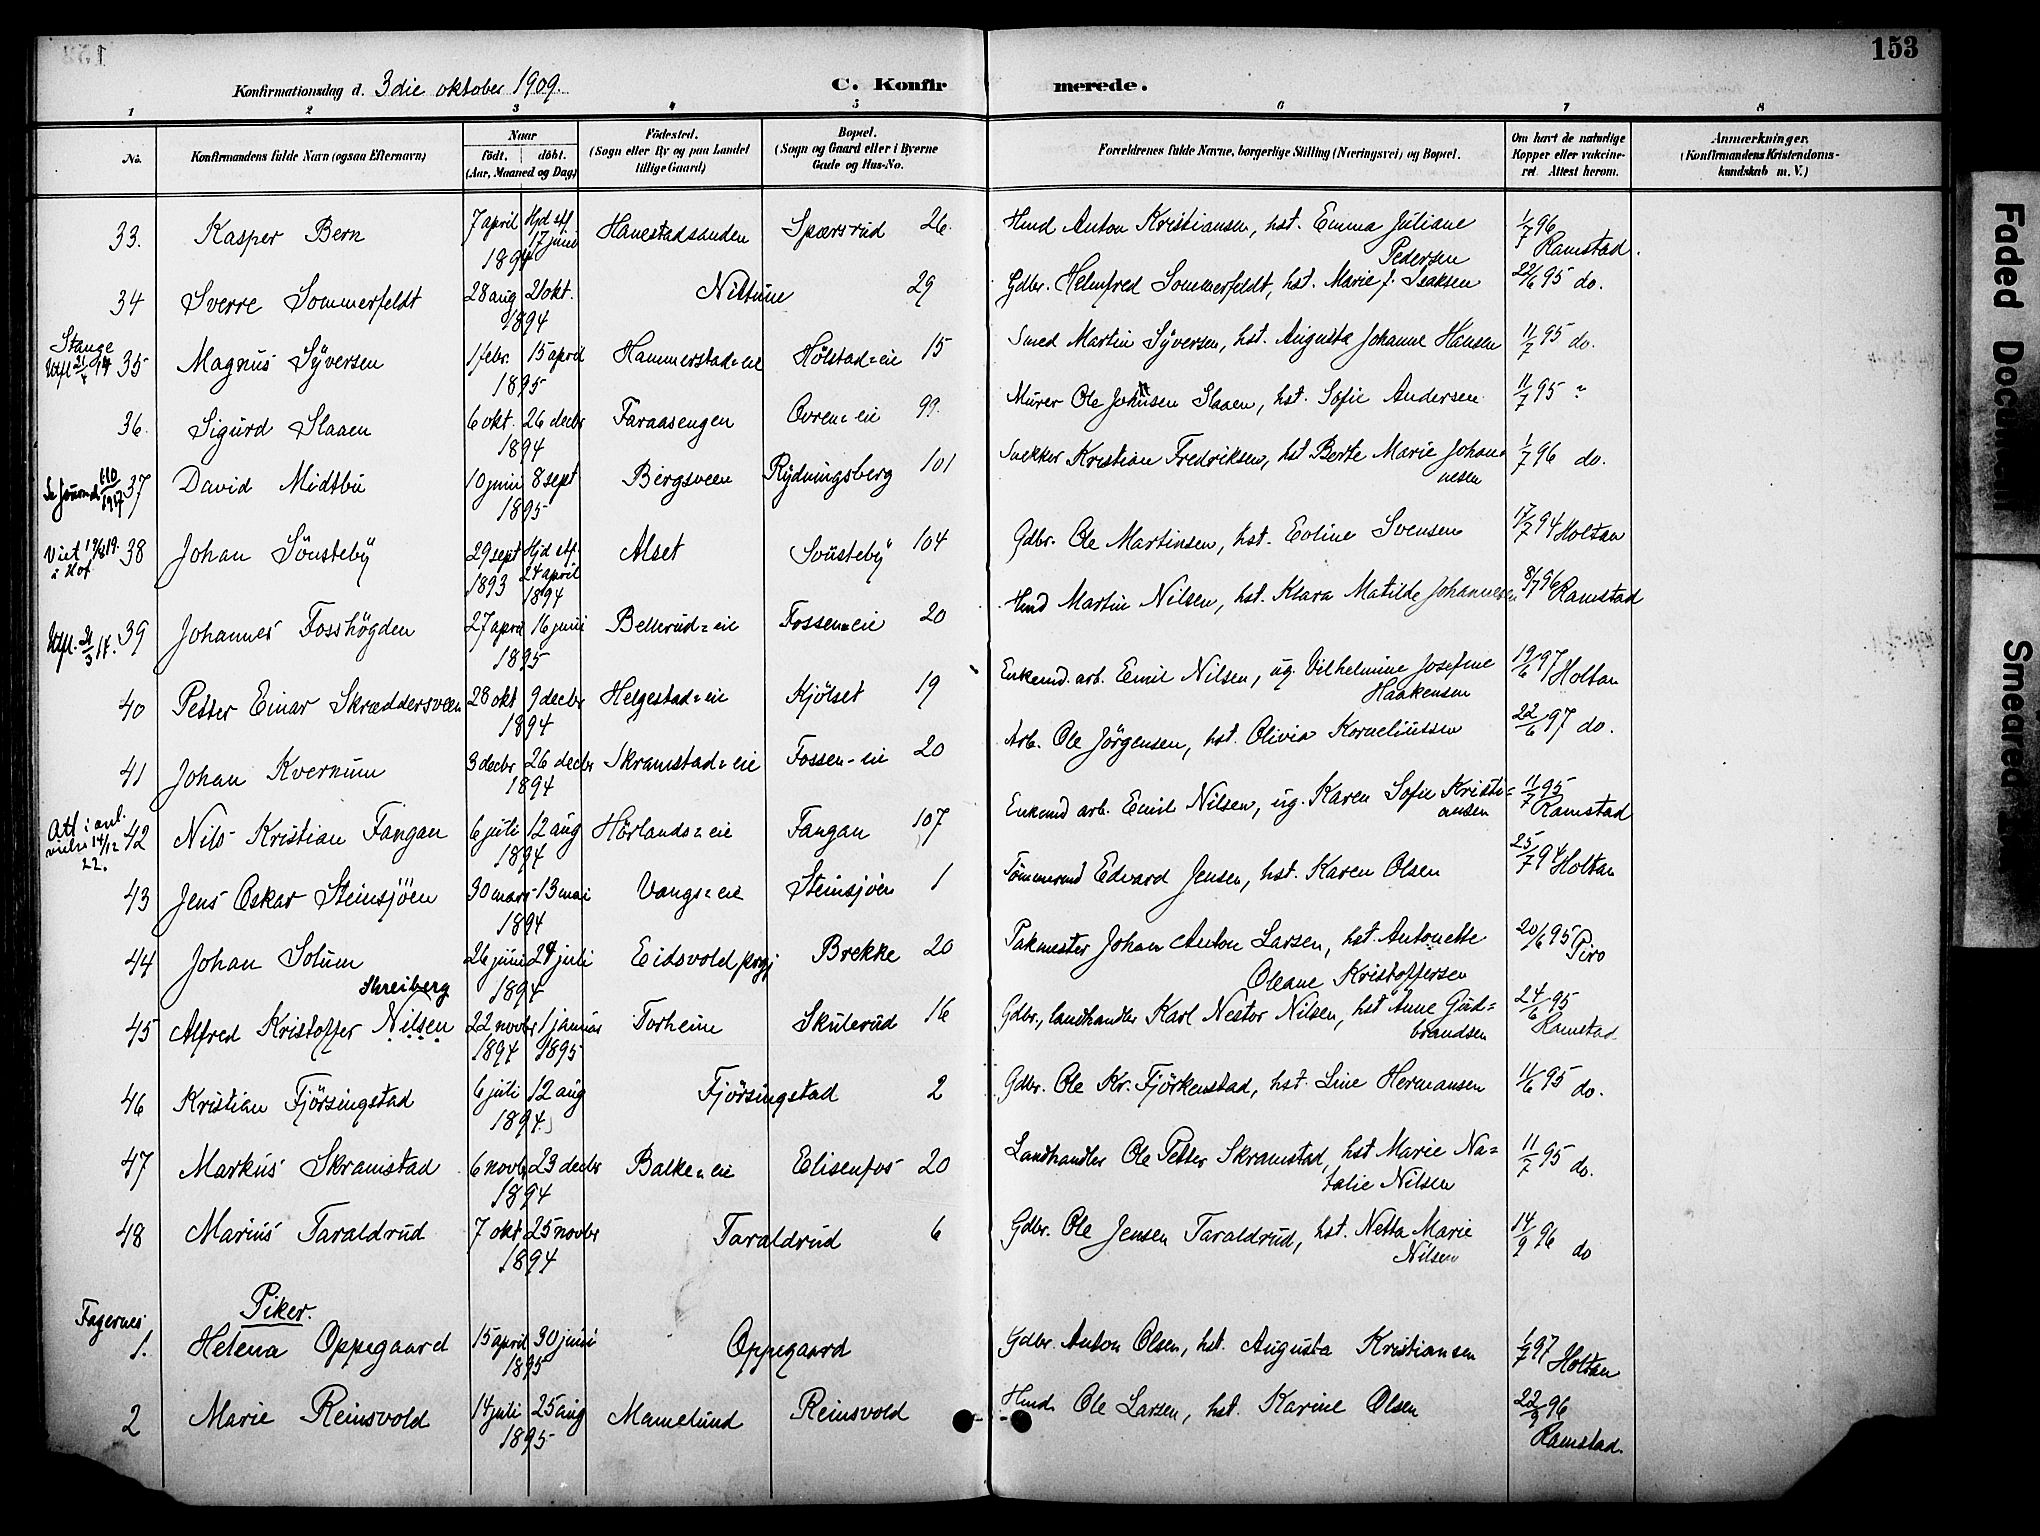 153
Konfirmationsdag d. 3die oktober 1909.
C. Konfirmerede.
1 2 3 4 5 6 7 8
No.
Konfirmandens fulde Navn (ogsaa Efternavn)
Naar
født. døbt.
(Aar, Maaned og Dag)
Fødested.
(Sogn eller By og paa Landet
tillige Gaard)
Bopæl.
(Sogn og Gaard eller i Byerne
Gade og Hus-No.
Forældrenes fulde Navne, borgerlige Stilling (Næringsvei) og Bopæl.
Om havt de naturlige
Kopper eller vakcine-
ret. Attest herom.
Anmærkninger.
(Konfirmandens Kristendoms-
kundskab m. V.)
33. Kasper Bern 7 april Hjd stf. 17 juni 1894 Hanestadsanden Spærsrud 26. Hmd Anton Kristiansen, hst. Emma Juliane Pedersen 1/7 96 Ramstad.
34 Sverre Sommerfeldt 28 aug 21 okt. 1894 Nittune 29 Gdbr. Helmfred Sommerfeldt, hst. Marie f. Isaksen 22/6 95 do.
Stange
35 Magnus Syversen 1 febr. 15 april 1895 Hammerstad=eie Hølstad=eie 15 Smed Martin Syversen, hst. Augusta Johanne Hansen 11/7 95 do.
36. Sigurd Slaaen 6 okt. 26 decbr 1894 Faraasengen Ovren=eie 99. Murer Ole Johnsen Slaaen, hst. Sofie Andersen 11/7 95 "
110/1917 37 David Midtbu 10 juni 8 sept 1895 Bergsveen Rydningsberg 101 Snekker Kristian Fredriksen, hst Berte Marie Johannesen 1/7 96 do.
38 Johan Sönsteby 29 sept 1893 Hjd stf. 24 april 1894 Alset Sönsteby 104 Gdbr. Ole Martinsen, hst. Eoline Svensen 17/7 94 Holtan
Utfl. 21/3 14. 39 Johannes Fosshögden 27 april 16 juni 1895 Bellerud=eie Fossen=eie 20 Hmd Martin Nilsen, hst. Klara Matilde Johannesen 8/7 96 Ramstad
40 Petter Einar Skræddersveen 28 okt 9 decbr 1894 Helgestad=eie Kjölset 19 Enkemd. arb. Emil Nilsen, ug. Vilhelmine Josefine Haakensen 19/6 97 Holtan
41 Johan Kvernum 3 decbr 26 decbr 1894 Skramstad=eie Fossen-eie 20 Arb. Ole Jörgensen, hst. Olivia Korneliussen 22/6 97 do.
Att i anl. vielse 14/12 22. 42 Nils Kristian Fangan 6 juli 12 aug 1894 Hörlands=eie Fangan 107 Enkemd arb. Emil Nilsen, ug. Karen Sofie Kristi=ansen 11/7 95 Ramstad
43 Jens Oskar Steinsjöen 30 mars 13 mai 1894 Vangs=eie Steinsjöen 1 Tømmermd Edvard Jensen, hst. Karen Olsen 25/7 94 Holtan
44 Johan Solum 26 juni 24 juli 1894 Eidsvold prgj Brekke 20 Pakmester Johan Anton Larsen, hst. Antonette Oleane Kristoffersen 20/6 95 Piro
Skreiberg
45 Alfred Kristoffer Nilsen 22 novbr 1894 1 januar 1895 Torheim Skulerud 16 Gdbr., landhandler Karl Nestor Nilsen, hst Anne Gud=brandsen 24/6 95 Ramstad
46 Kristian Fjörsingstad 6 juli 12 aug 1894 Fjörsingstad 2 Gdbr. Ole Kr. Fjörkenstad, hst. Line Hermansen 11/6 95 do.
47 Markus Skramstad 6 novbr 23 decbr 1894 Balke=eie Elisenfos 20 Landhandler Ole Petter Skramstad, hst Marie Na=talie Nilsen 11/7 95 do.
48 Marius Taraldrud 7 okt 25 novbr 1894 Taraldrud 6 Gdbr. Ole Jensen Taraldrud, hst. Netta Marie Nilsen 14/9 96 do
Piker.
Fagernes
1. Helena Oppegaard 15 april 30 juni 1895 Oppegaard Gdbr. Anton Olsen, hst. Augusta Kristiansen 1/7 97 Holtan
2 Marie Reinsvold 14 juli 25 aug 1895 Mamelund Reinsvold Hmd. Ole Larsen, hst. Karine Olsen 22/9 96 Ramstad.
Faded Document
Smeared